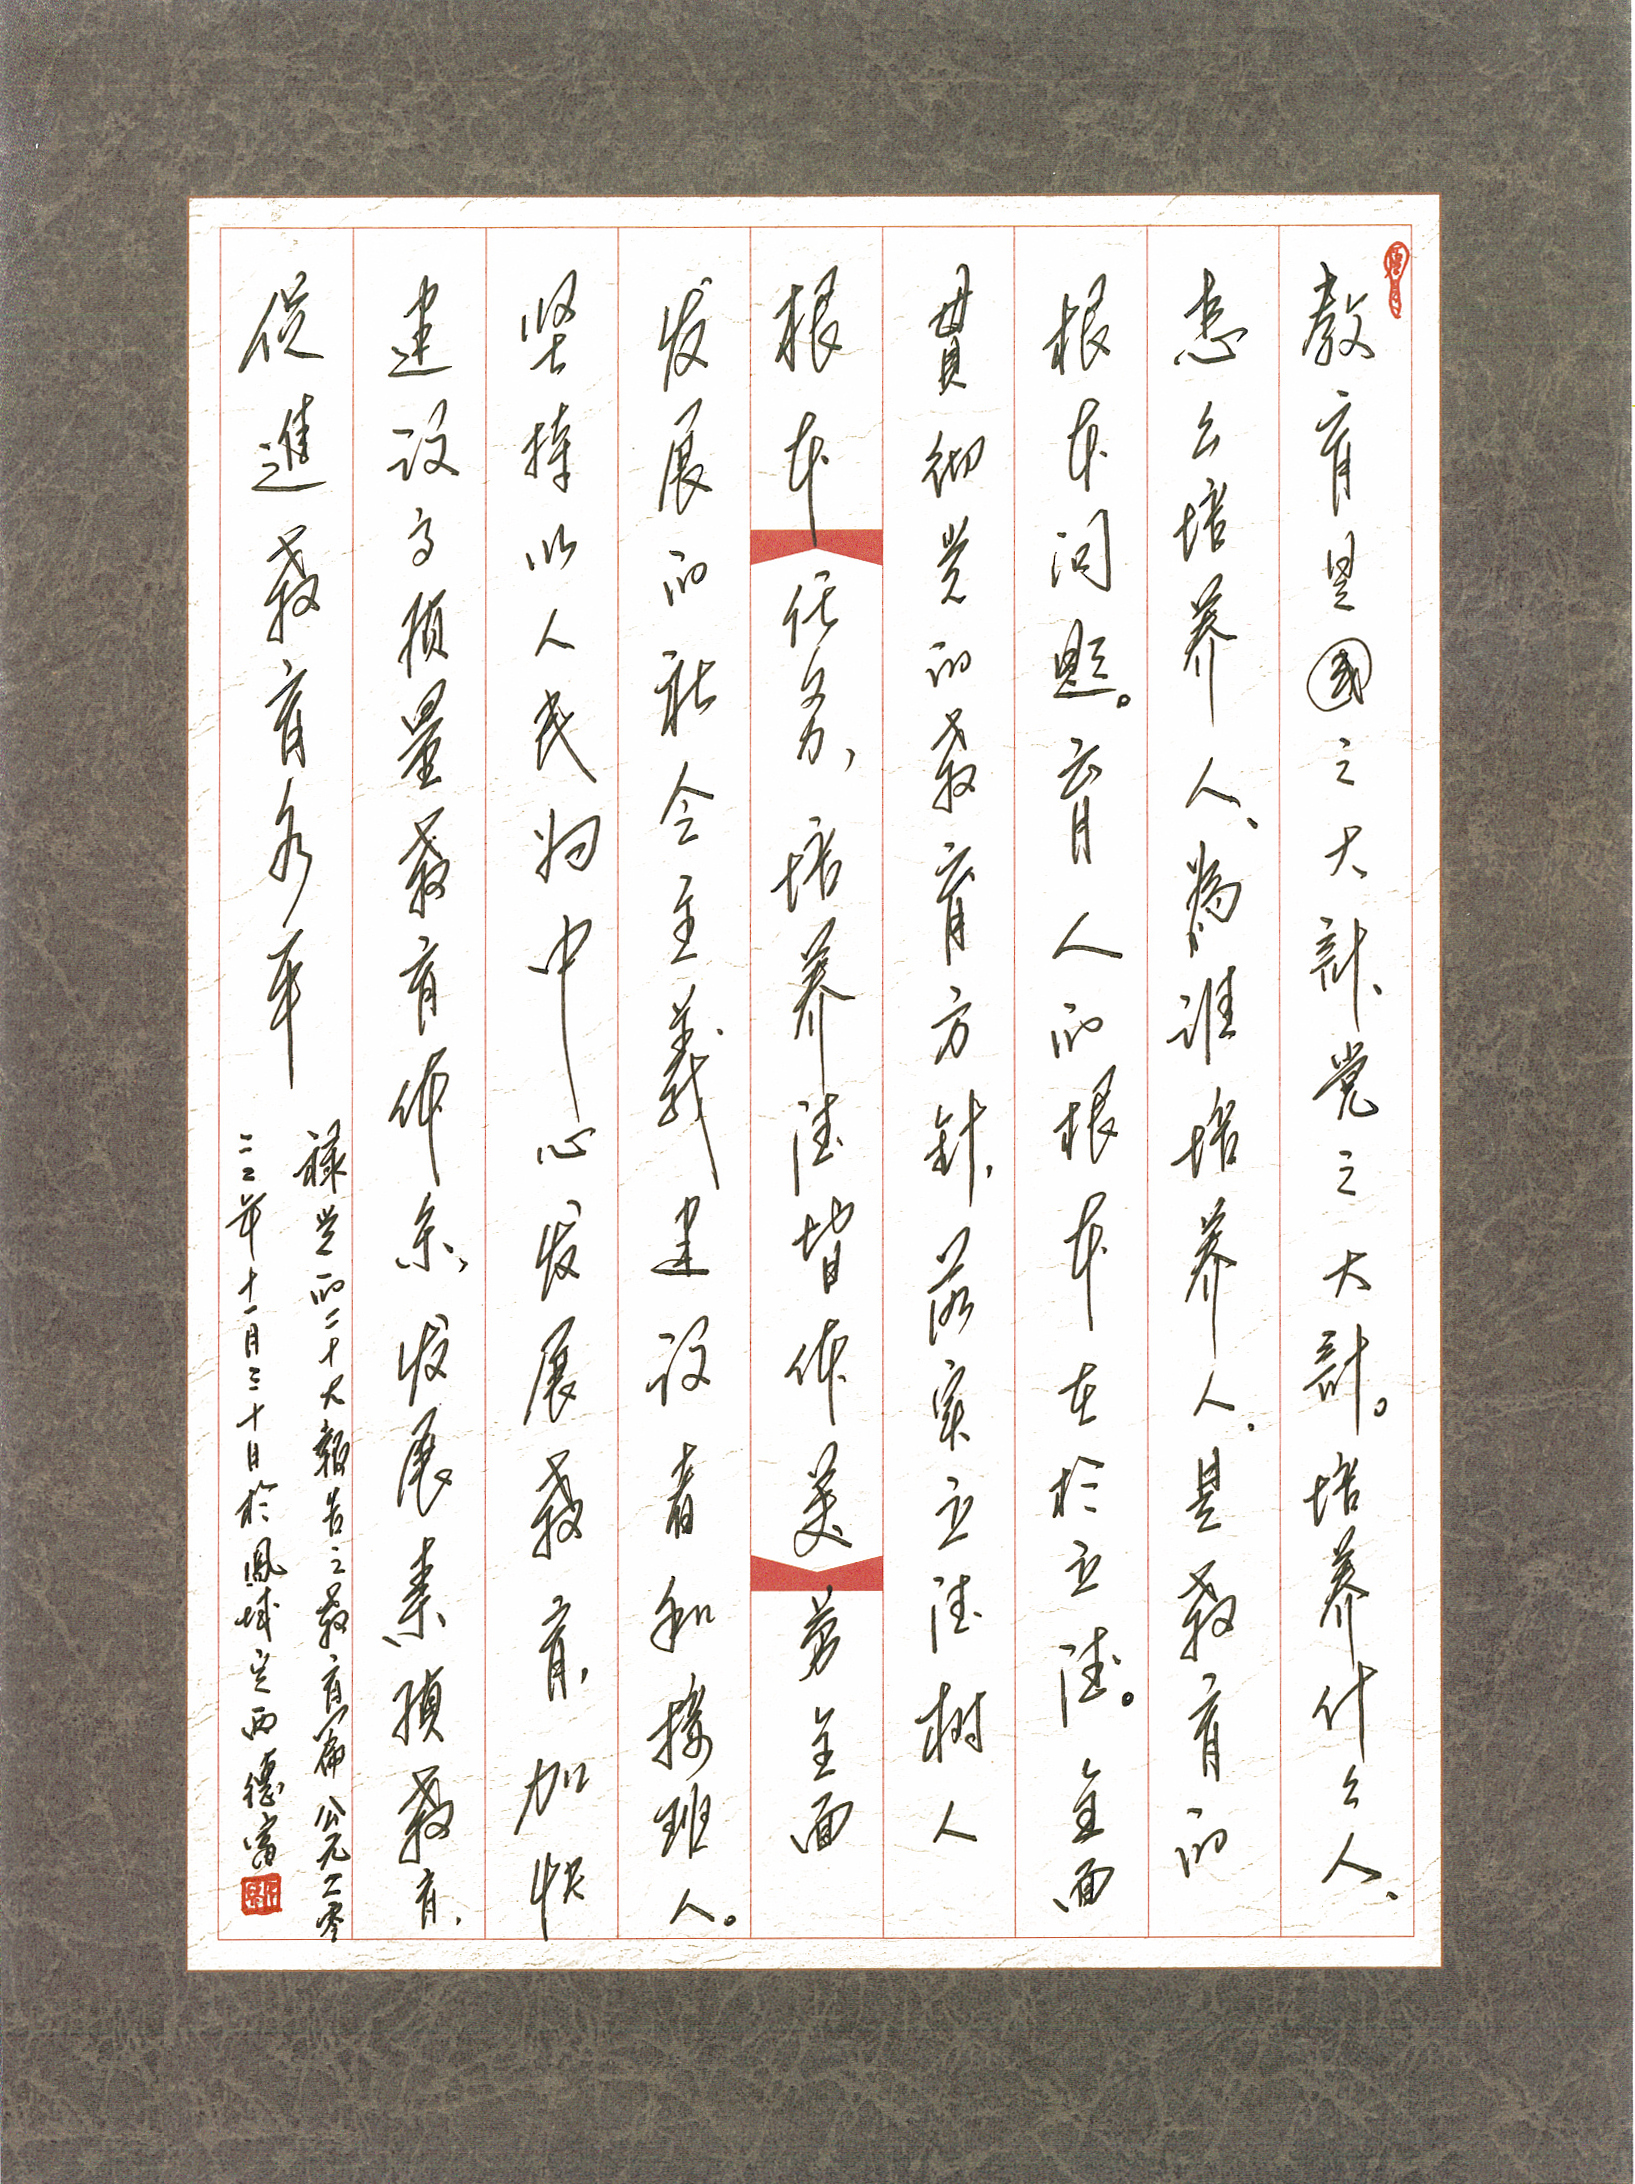 教育是國之大計、党之大計。培养什么人、
怎么培养人、為谁培养人.是教育的
根本问题。育人的根本在於立德。全面
貫彻党的教育方針,落实立德树人
根本任务,培养德智体美劳全面
发展的社会主義建设者和接班人。
坚持以人民为中心发展教育,加快
建设高质量教育体系,发展素质教育,
促進教育公平
錄党的二十大報告之教育篇 公元二零
二二年十一月三十日於鳳城定西德富